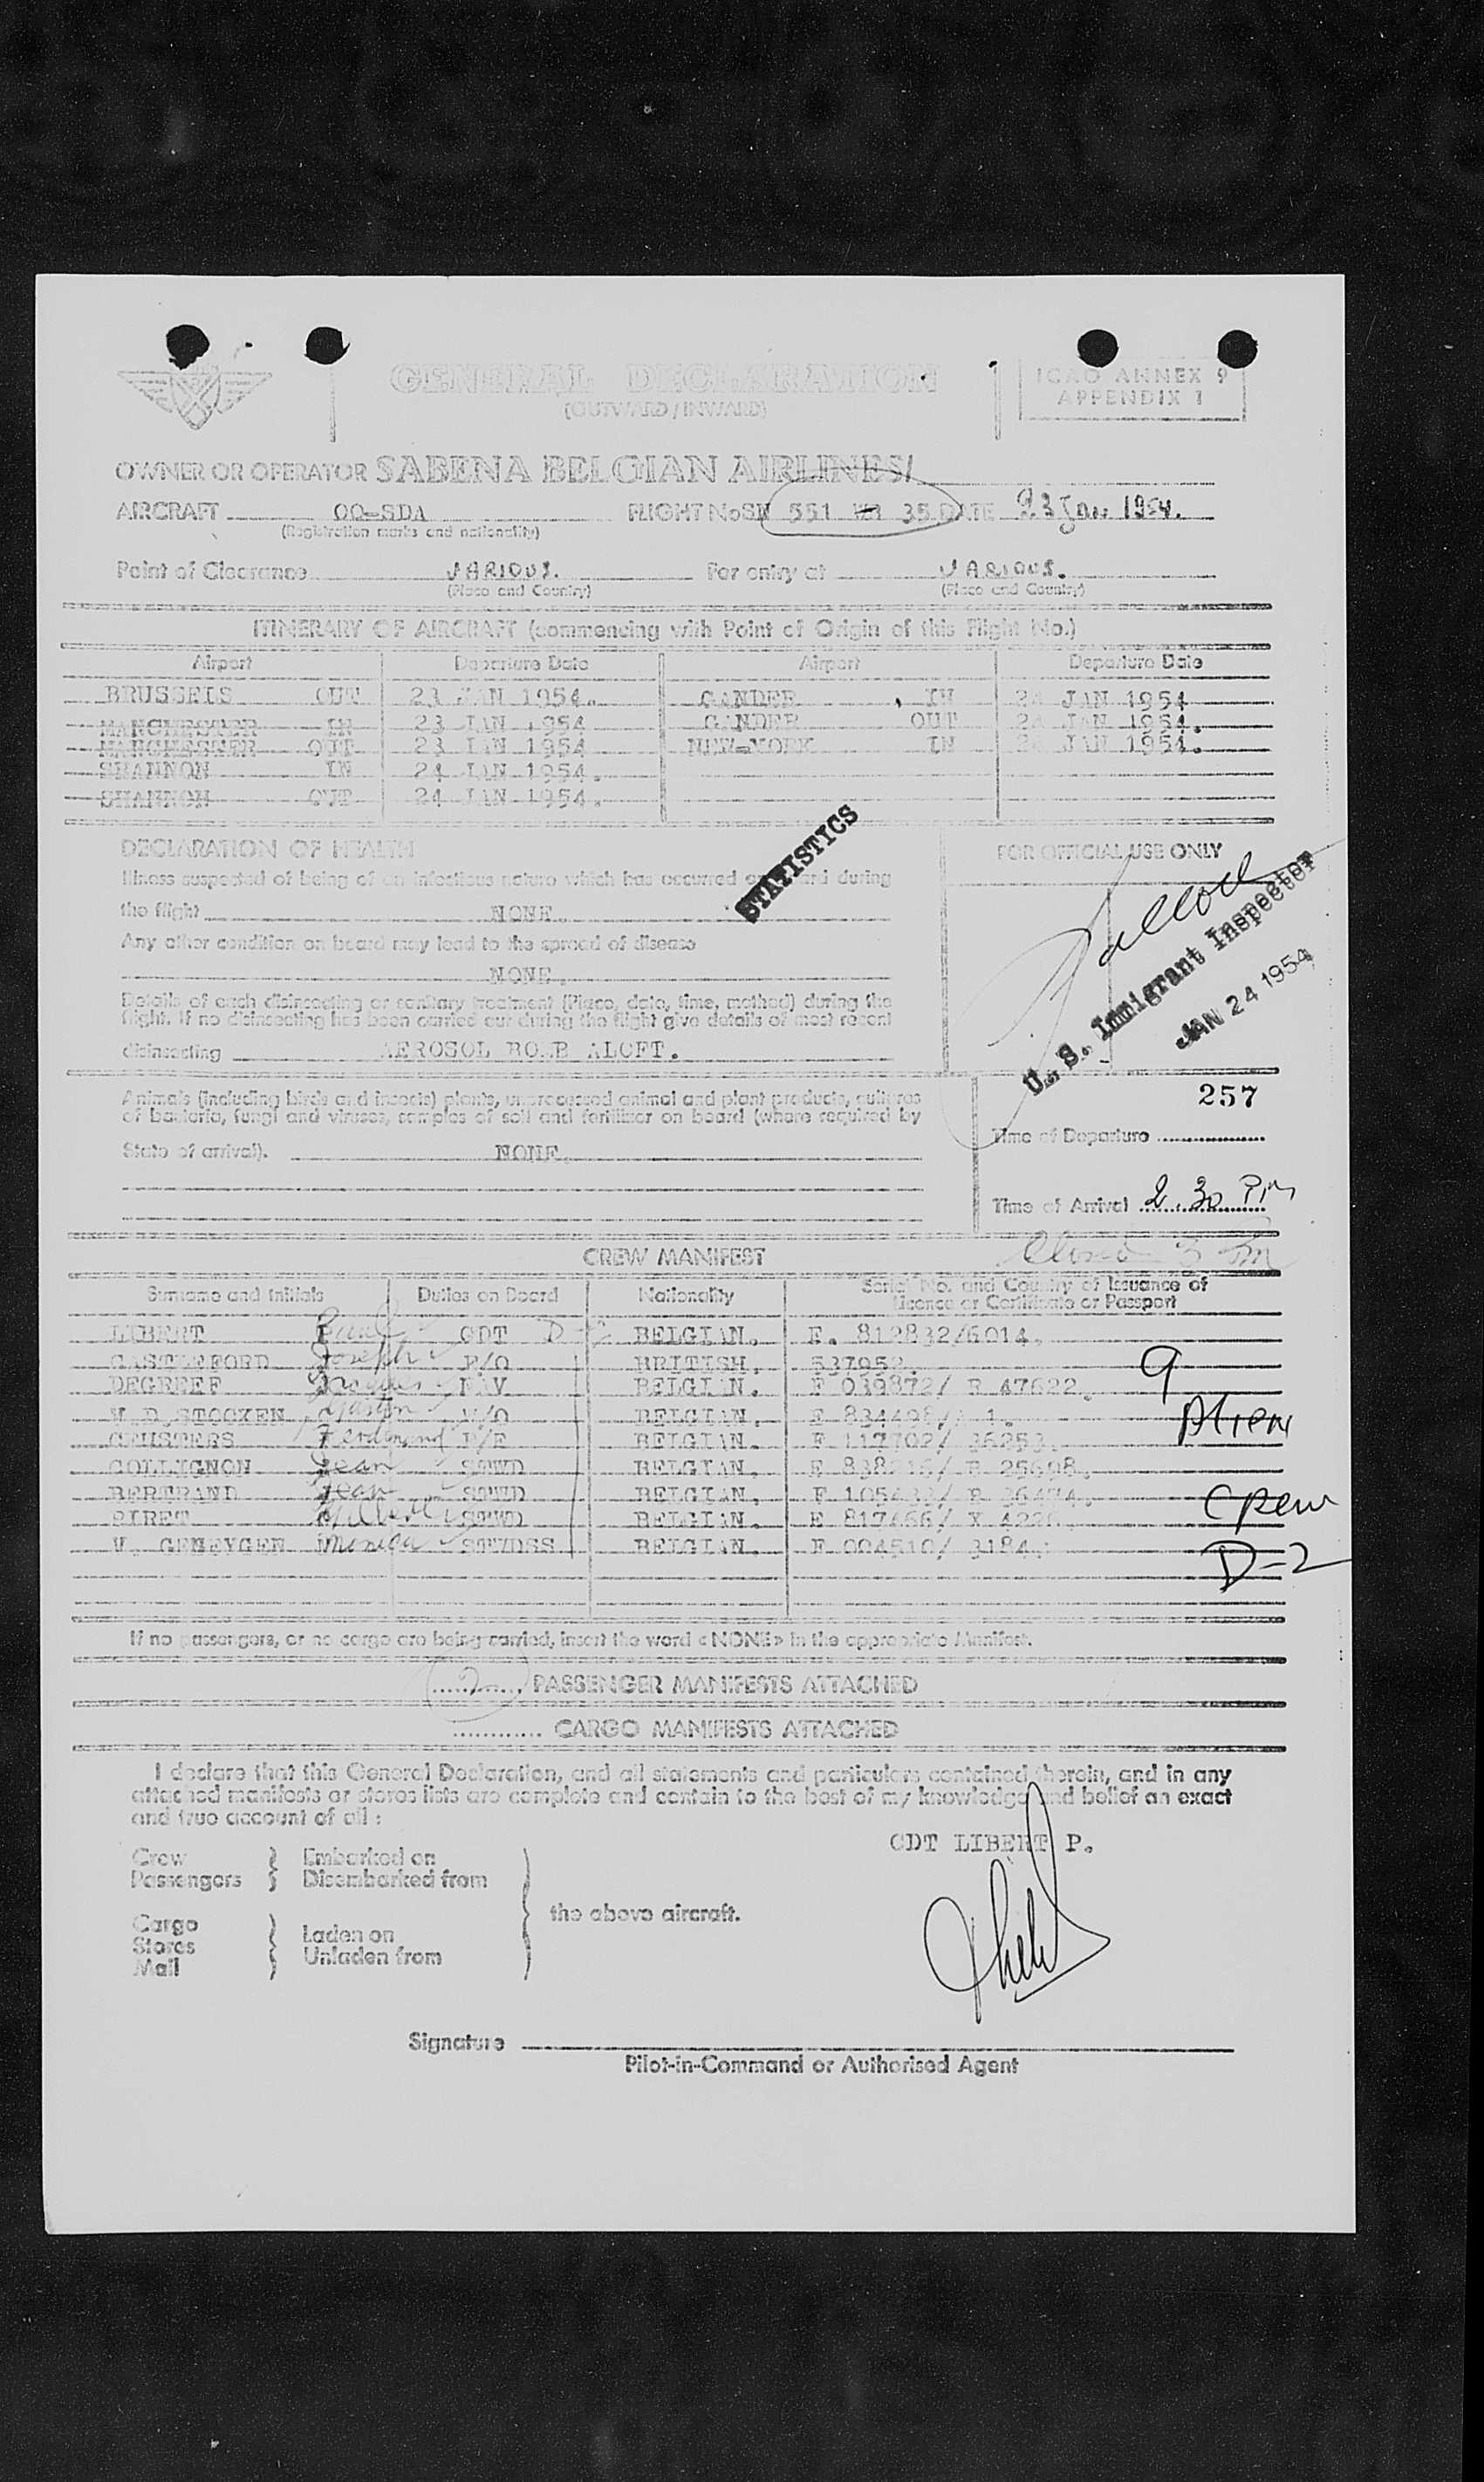 GENERAL DECLARATION
(OUTWARD / INWARD)
ICAO ANNEX 9
APPENDIX 1
OWNER OR OPERATOR SABENA BELGIAN AIRLINES
AIRCRAFT OO-SDA FLIGHT No SN 551 35 DATE 23 Jan 1954.
(Registration marks and nationality)
Point of Clearance VARIOUS. For entry at VARIOUS.
(Place and Country) (Place and Country)
ITINERARY OF AIRCRAFT (commencing with Point of Origin of this Flight No.)
Airport Departure Date Airport Departure Date
BRUSSELS OUT 23 JAN 1954. GANDER IN 24 JAN 1954
MANCHESTER IN 23 JAN 1954 GANDER OUT 24 JAN 1954.
MANCHESTER OUT 23 JAN 1954 NEW-YORK IN 24 JAN 1954.
SHANNON IN 24 JAN 1954.
SHANNON OUT 24 JAN 1954.
STATISTICS
DECLARATION OF HEALTH
Illness suspected of being of an infectious nature which has occurred on board during
the flight NONE.
Any other condition on board may lead to the spread of disease
NONE.
Details of each disinsecting or sanitary treatment (Place, date, time, method) during the
flight. If no disinsecting has been carried out during the flight give details of most recent
disinsecting AEROSOL BOMB ALOFT.
FOR OFFICIAL USE ONLY
U. S. Immigrant Inspector
JAN 24 1954
257
Animals (including birds and insects) plants, unprocessed animal and plant products, cultures
of bacteria, fungi and viruses, samples of soil and fertilizer on board (where required by
State of arrival). NONE.
Time of Departure
Time of Arrival 2.30 PM
CREW MANIFEST
Surname and Initials Duties on Board Nationality Serial No. and Country of Issuance of
Licence or Certificate or Passport
LIBERT Paul CDT D-2 BELGIAN. F. 812832/6014.
CASTLEFORD Joseph P/O BRITISH. 537952.
DEGREEF Jacques NAV BELGIAN. F 039872/ B 47622
V.D.STOCKEN Gaston BELGIAN.
CEUSTERS Ferdinand F/E BELGIAN. F 117702/ 36253
COLLIGNON Jean STWD BELGIAN.
BERTRAND Jean STWD BELGIAN.
PIRET STWD BELGIAN.
V. GEMEYGEN Monica STWDSS BELGIAN. F 004510/ 3184.
9
Alien
Crew
D-2
If no passengers, or no cargo are being carried, insert the word «NONE» in the appropriate Manifest.
2 PASSENGER MANIFESTS ATTACHED
CARGO MANIFESTS ATTACHED
I declare that this General Declaration, and all statements and particulars contained therein, and in any
attached manifests or stores lists are complete and contain to the best of my knowledge and belief an exact
and true account of all :
CDT LIBERT P.
Crew Embarked on
Passengers Disembarked from
the above aircraft.
Cargo
Stores Laden on
Mail Unladen from
Signature
Pilot-in-Command or Authorised Agent